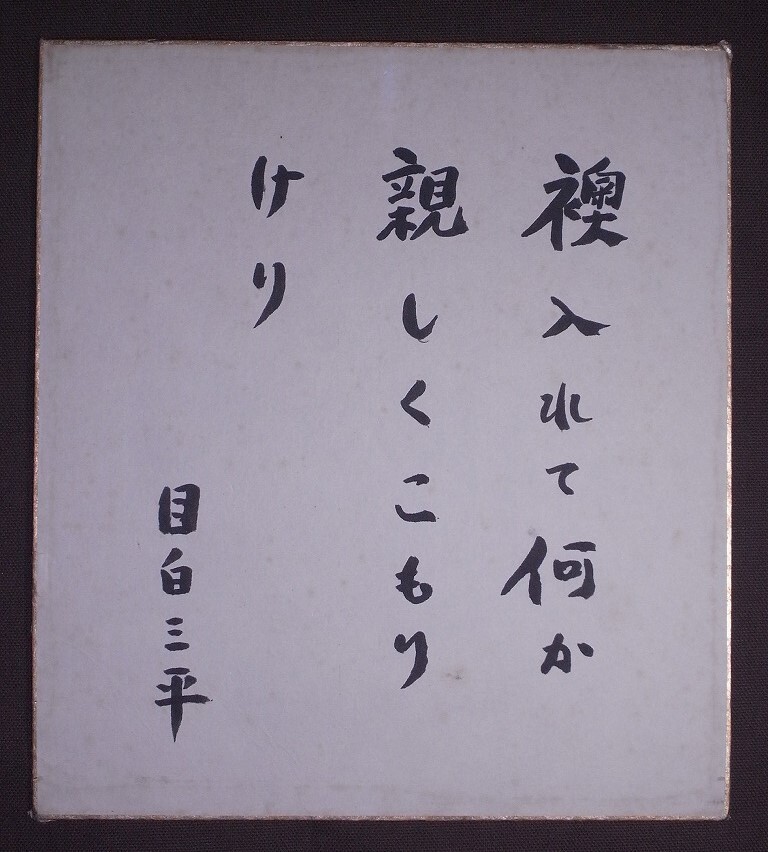 襖入れて何か
親しくこもり
けり
目白三平